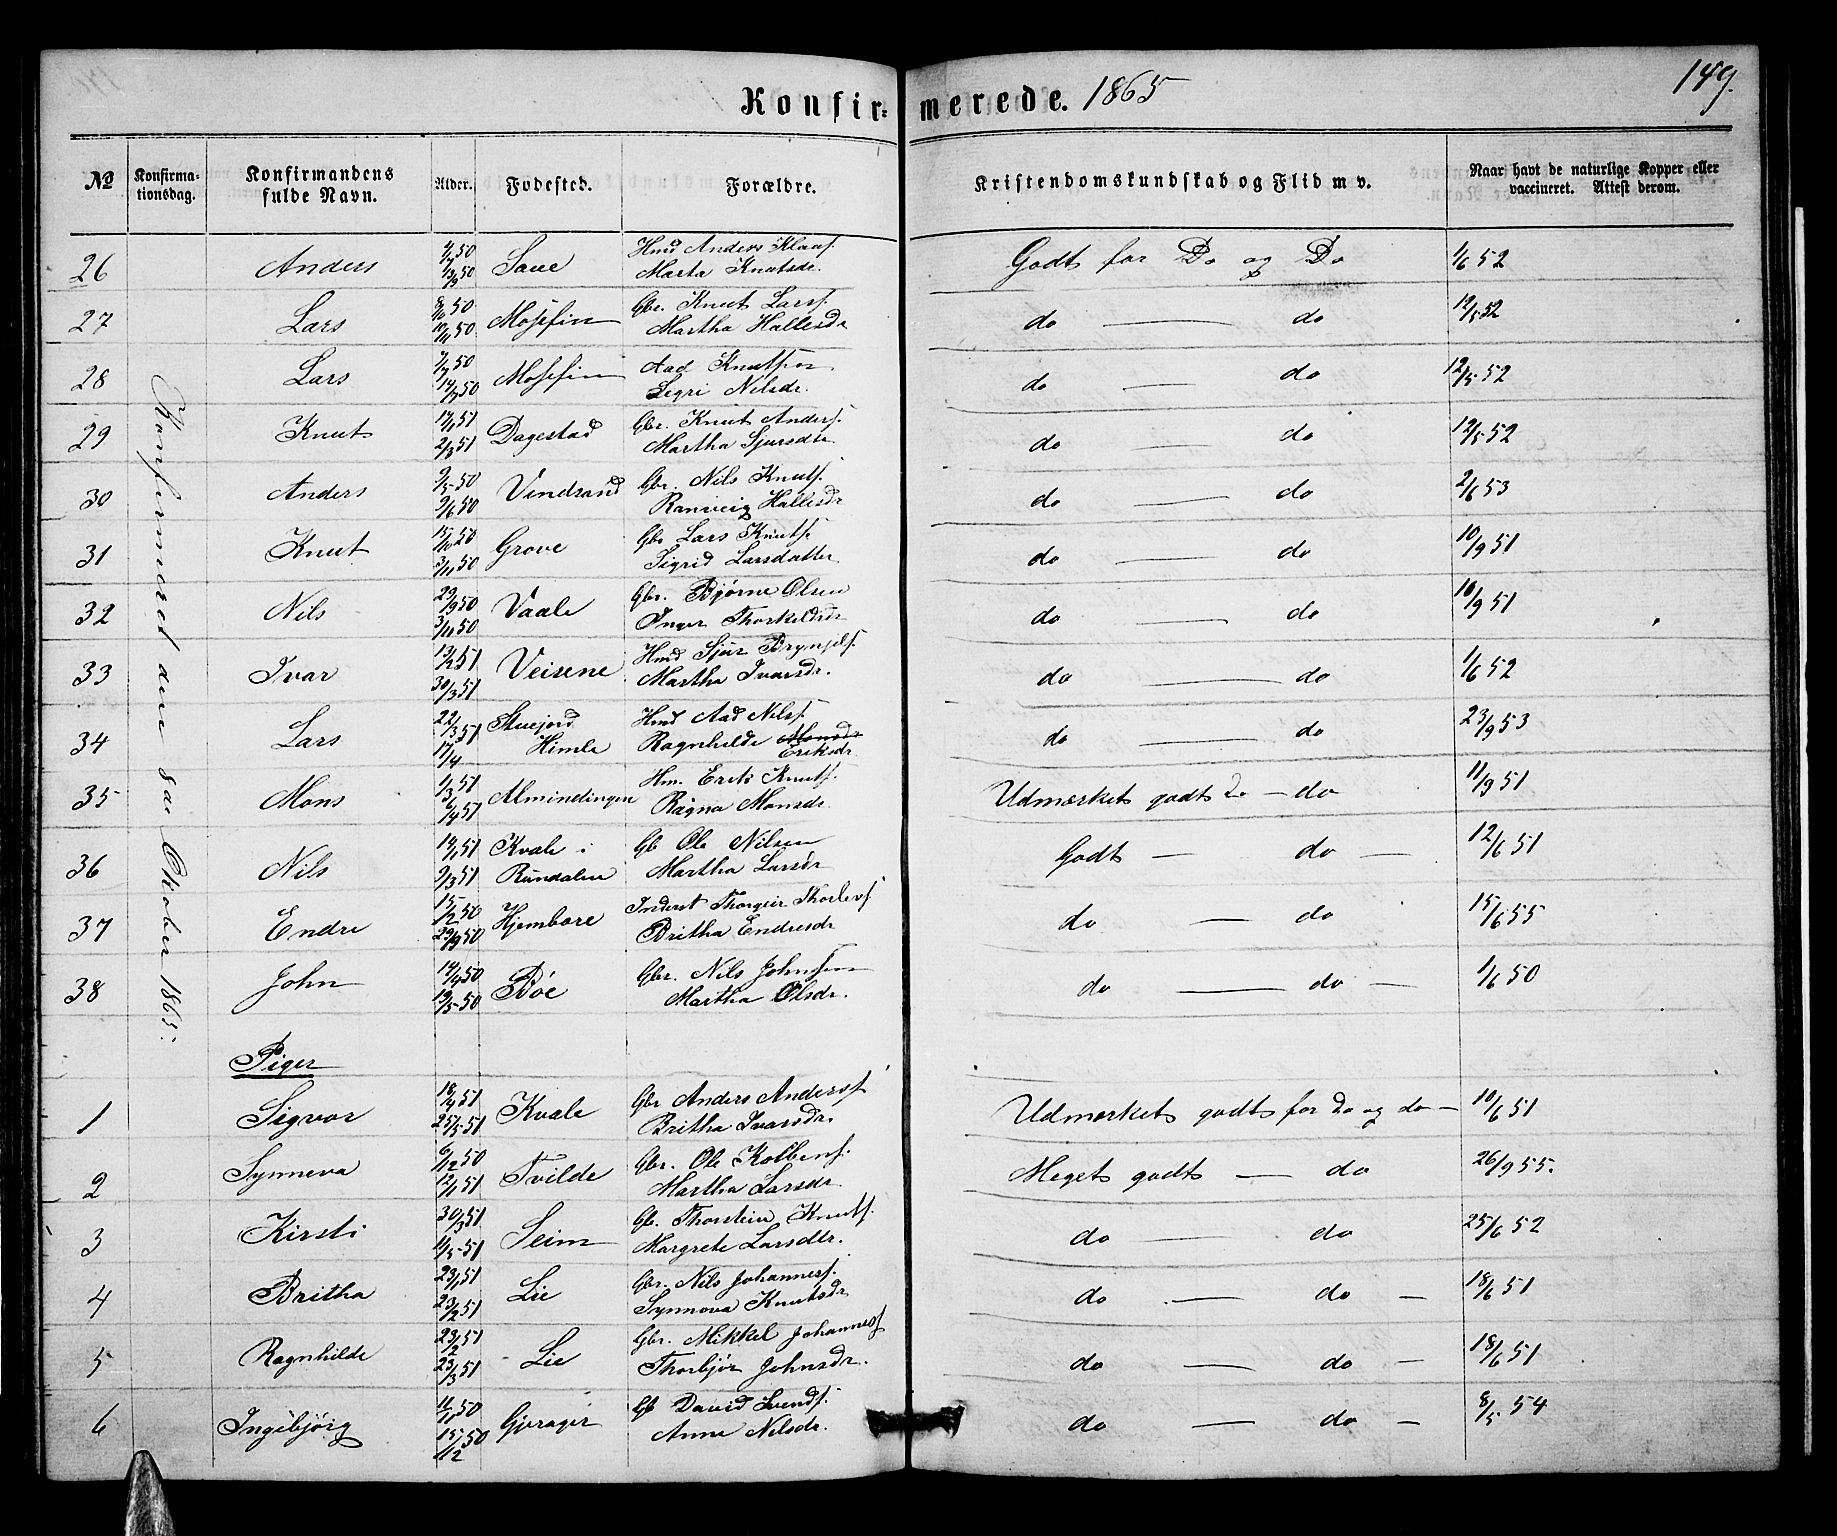 Konfirmerede. 1865
149.
№ Konfirmationsdag. Konfirmandens fulde Navn. Alder. Fødested. Forældre. Kristendomskundskab og Flid m v. Naar havt de naturlige Kopper eller vaccineret. Attest derom.
Konfirmeret den 8de Oktober 1865.
26 Anders 4/7 50 Saue Hmd Anders Klaas. Godt for Do og Do 1/6 52
13/9 50 Marta Knutsdr.
27 Lars 8/10 50 Møsefin Gbr. Knut Larss. do — do 12/5 52
10/11 50 Martha Hallesdr
28 Lars 7/7 50 Møsefin Aad Knutson do — do 12/5 52
14/7 50 Segri Nilsdr.
29 Knut 17/1 51 Dagestad Gbr. Knut Anders. do — do 12/5 52
2/3 51 Martha Sjursdtr
30 Anders 9/5 50 Vindsand Gbr. Nils Knuts. do — do 2/6 53
9/6 50 Ranveig Hallesdr
31 Knut 15/10 50 Grove Gbr Lars Knuts. do — do 10/9 51
3/11 50 Sigrid Larsdatter
32 Nils 29/9 50 Vaale Gbr. Bjørne Olsen do — do 10/9 51
3/11 50 Inger Thorkeldsdr
33 Ivar 13/2 51 Veisene Hmd Sjur Brynjels. do — do 1/6 52
30/3 51 Martha Ivarsdr.
34 Lars 22/3 51 Skuejord Hmd Aad Nilss. do — do 23/9 53
17/4 Himle Ragnhilde Monsdr Eriksdr
35 Mons 1/3 51 Almindingen Hm. Erik Knuts. Udmerket godt Do — do 11/9 51
6/4 51 Ragna Monsdr.
36 Nils 14/1 51 Kvale i Gb Ole Nilsen Godt — do — 12/6 51
2/3 51 Rundalen Martha Larsdr
37 Endre 15/12 50 Hjembore Inderst Thorgeir Thorlevs. do — do 15/6 55
29/9 50 Britha Endresdr
38 John 14/4 50 Bøe Gbr. Nils Johnsen do — do — 1/6 50
19/5 50 Martha Olsdr.
Piger
1 Sigvor 18/4 51 Kvale Gbr Anders Anderss. Udmerket godt for Do og do — 10/6 51
25/5 51 Britha Ivarsdr.
2 Synneva 6/12 50 Tvilde Gbr. Ole Kolbens. Meget godt — do 26/9 55.
12/1 51 Martha Larsdr.
3 Kirsti 30/3 51 Seim Gb. Thorstein Knuts. do — do 25/6 52
11/5 51 Margrete Larsdtr.
4 Britha 23/1 51 Lie Gbr. Nils Johanness. do — do — 18/6 51
23/2 51 Synnova Knutsdr
5 Ragnhilde 23/2 51 Lie Gbr. Mikkel Johanness do — do — 18/6 51
23/3 51 Thorbjør Johnsdr.
6 Ingebjørg 11/11 50 Gjerager Gb David Svends. do — do — 8/5 54
15/12 50 Anne Nilsdr.